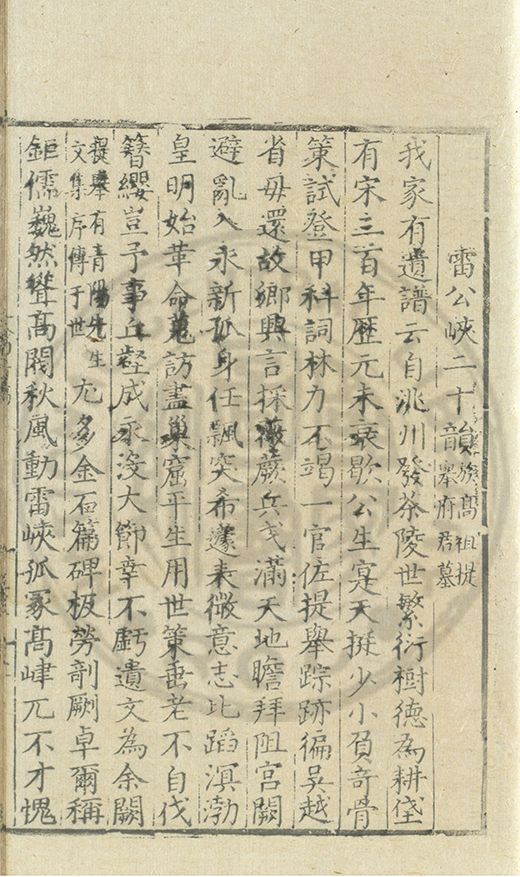 雷公峽二十韻族髙祖提舉府君墓
我家有遺譜云自洮州發茶陵世繁衍樹德為耕垡
有宋三百年歷元未衰歇公生寔天挺少小負奇骨
策試登甲科詞林力不竭一官佐提舉踪跡徧吳越
省毋還故鄉興言採薇蕨兵戈滿天地瞻拜阻宮闕
避亂入永新孤身任飄突希微意志比蹈溟渤
皇明始革命蒐訪盡巢窟平生用世策垂老不自伐
簪纓豈予事丘壑成永沒大節幸不虧遺文為余闕
提舉有青陽先生文集序傳于世尢多金石篇碑板勞剞劂卓爾稱
鉅儒巍然聳髙閥秋風動雷峽孤冢髙峍兀不才愧